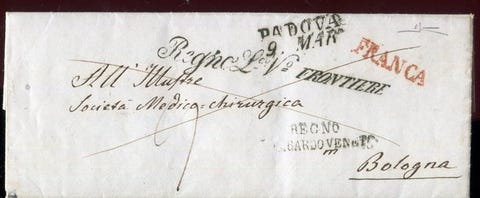 PADOVA
9 MARº
FRANCA
Regno Lº Vº
FRONTIERE
All' Illustre
Società Medico=chirurgica
REGNO
LOMBARDOVENETO
Bologna